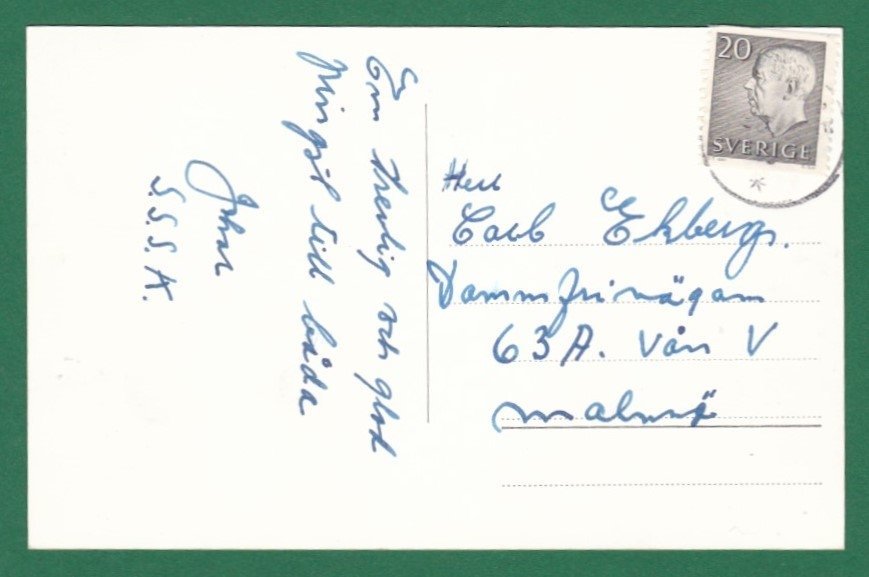 En trevlig och glad
Pingst till båda
Johan
S.S.S. A.
20
SVERIGE
Herr
Carl Ekberg.
Dammfrivägen
63 A. Vån V
Malmö